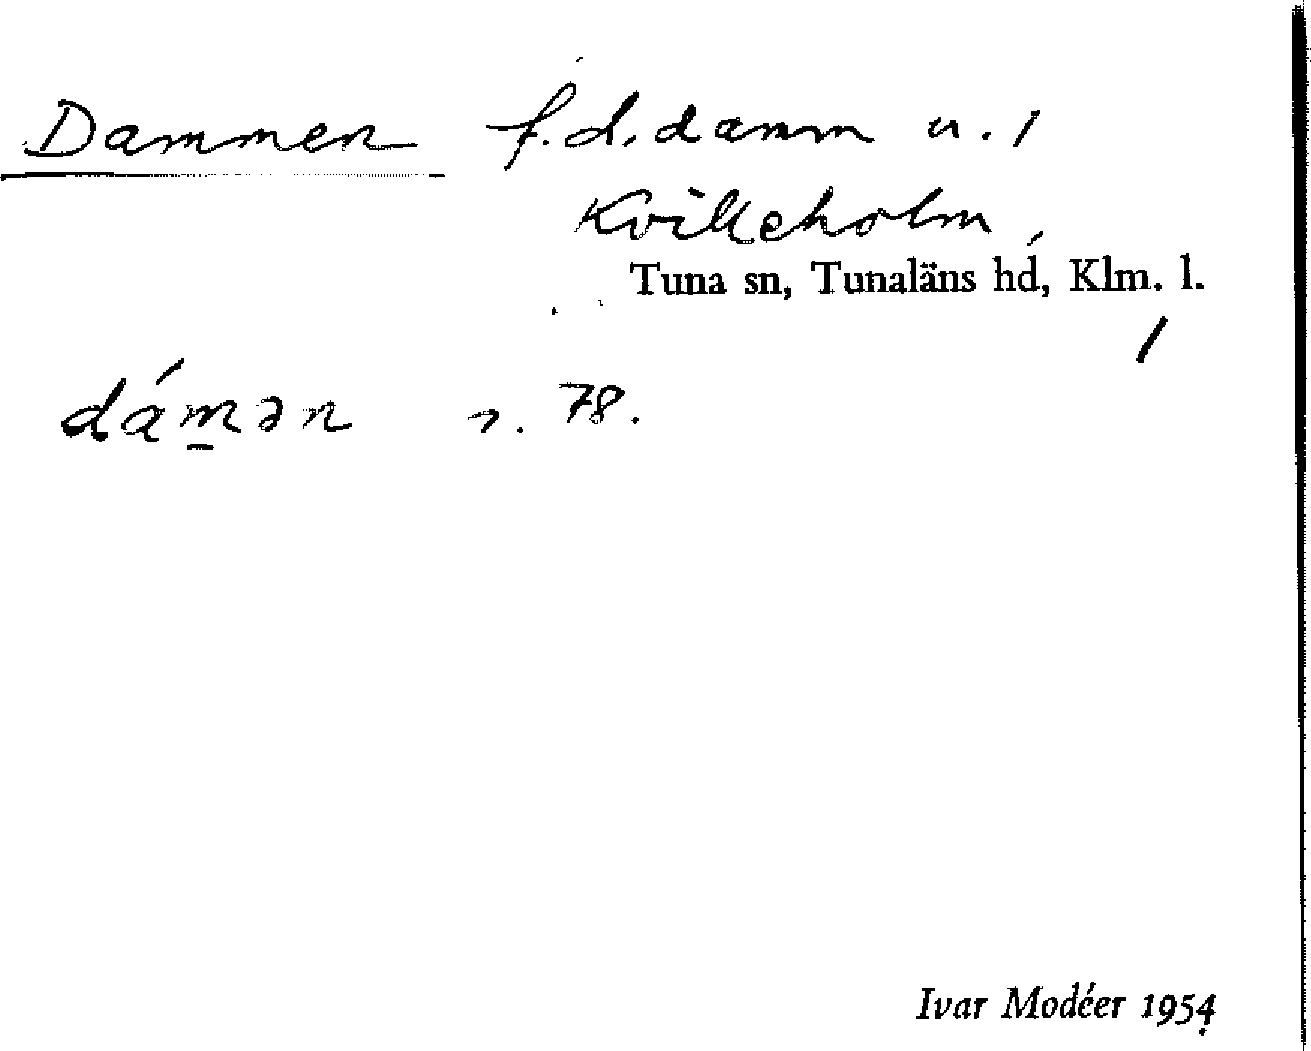 Dammen f.d. damm u. 1
Kvilleholm,
Tuna sn, Tunaläns hd, Klm. l.
/
dám̲ən s. 78.
Ivar Modéer 1954